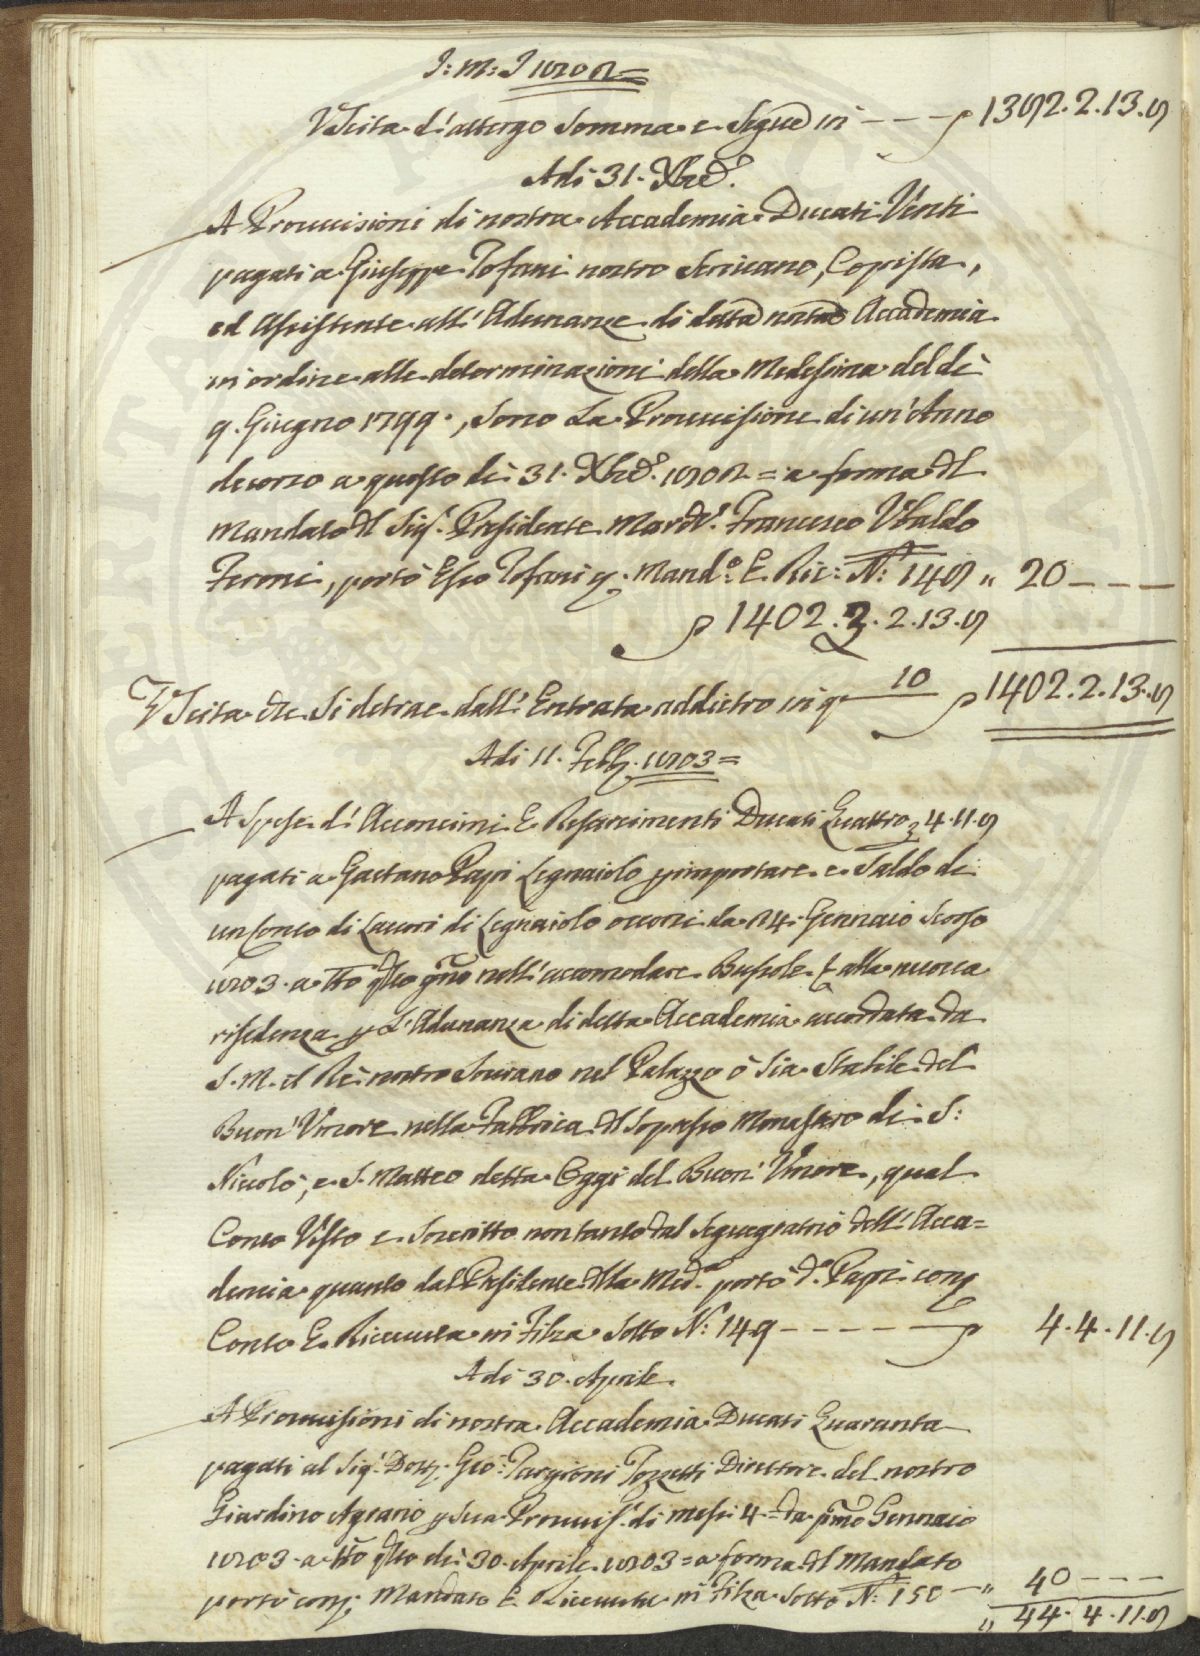 J: M: J 1802=
Uscita d'attergo Somma e Segue in --- ƒ 1382.2.13.8
Adi 31. Xbre.
A Provvisioni di nostra Accademia Ducati Venti
pagati a Giuseppe Tofani nostro Scrivano, Copista,
ed Assistente all'Adunanze di detta nostra Accademia
in ordine alle determinazioni della Medesima del dì
9. Giugno 1799., Sono La Provvisione di un'Anno
decorso a questo dì 31. Xbre. 1802= a forma dl
Mandato dl Sigr. Presidente Marche. Francesco Ubaldo
Feroni, portò Esso Tofani p. Mando. E. Ric: N: 148 " 20 ---
ƒ 1402. 2. 2.13.8
Uscita che Si detrae dall'Entrata addietro in q 10 ƒ 1402.2.13.8
Adi 11. Febb. 1803=
A Spese d'Acconcimi E Resarcimenti Ducati Quattro 3 4.11.8
pagati a Gaetano Papi Legnaiolo p importare e Saldo di
un Conto di Lavori di Legnaiolo occorsi da 24. Gennaio Scorso
1803. a tto qsto gno nell'accomodare Bussole & alla nuova
risedenza p L'Adunanza di detta Accademia accordata da
S. M. il Rè nostro Sovrano nel Palazzo ò Sia Stabile del
Buon'Umore nella Fabbrica dl Soppresso Monastero di S:
Niccolò, e S. Matteo detta Oggi del Buon'Umore, qual
Conto Visto e Soscritto non tanto dal Segregratrio dell'Acca=
demia quanto dal Presidente dlla Meda. portò do. Papi con p
Conto E. Ricevuta in Filza Sotto N: 149 --- ƒ 4.4.11.8
Adi 30. Aprile.
A Provvisioni di nostra Accademia Ducati Quaranta
pagati al Sigr. Dott. Gio: Targioni Tozzetti Direttore del nostro
Giardino Agrario p Sua Provvis. di mesi 4= da pmo Gennaio
1803. a tto qsto dì 30. Aprile 1803= a forma dl Mandato
portò con p Mandato E Ricevuta in Filza Sotto N: 150 -- " 40 ---
" 44. 4.11.8